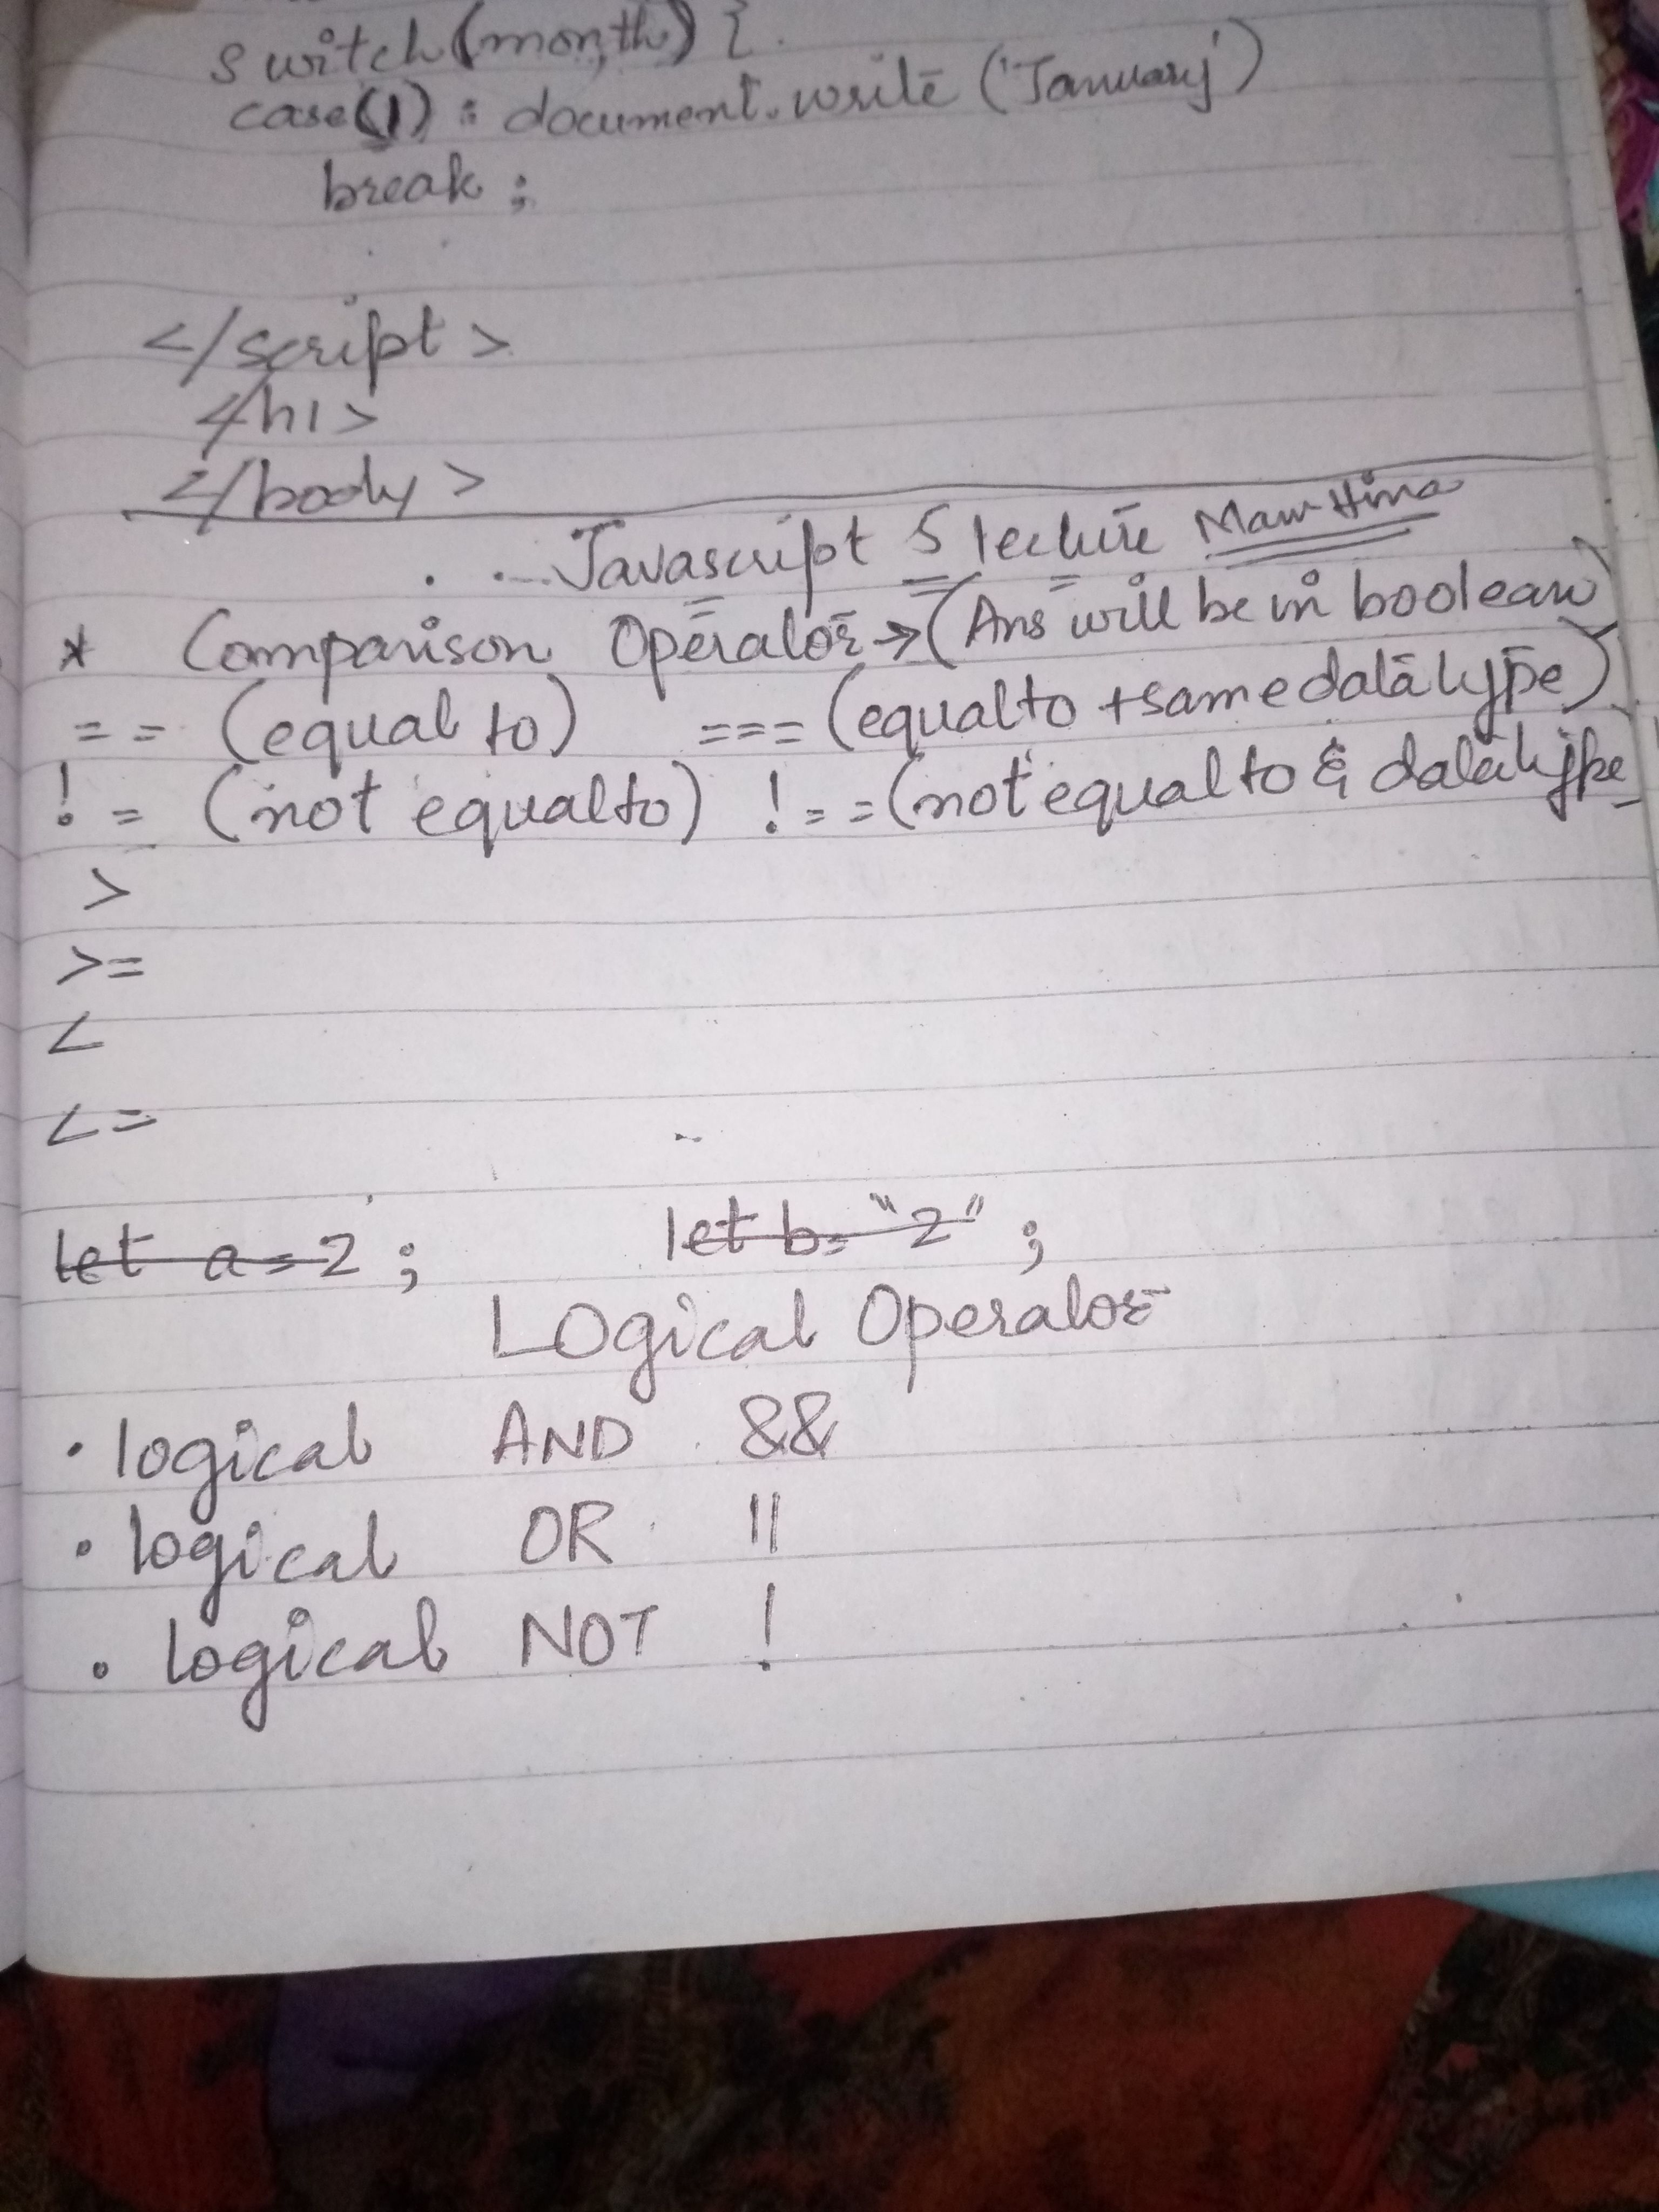 switch(month) {
case(1) : document.write ('January')
break ;
</script>
</h1>
</body>
Javascript 5 lecture Mam Hina
* Comparison Operator → (Ans will be in boolean)
== (equal to) === (equal to + same datatype)
!= (not equal to) !== (not equal to & datatype)
>
>=
<
<=
let a=2 ; let b="2" ;
LOgical Operator
• logical AND &&
• logical OR ||
• logical NOT !